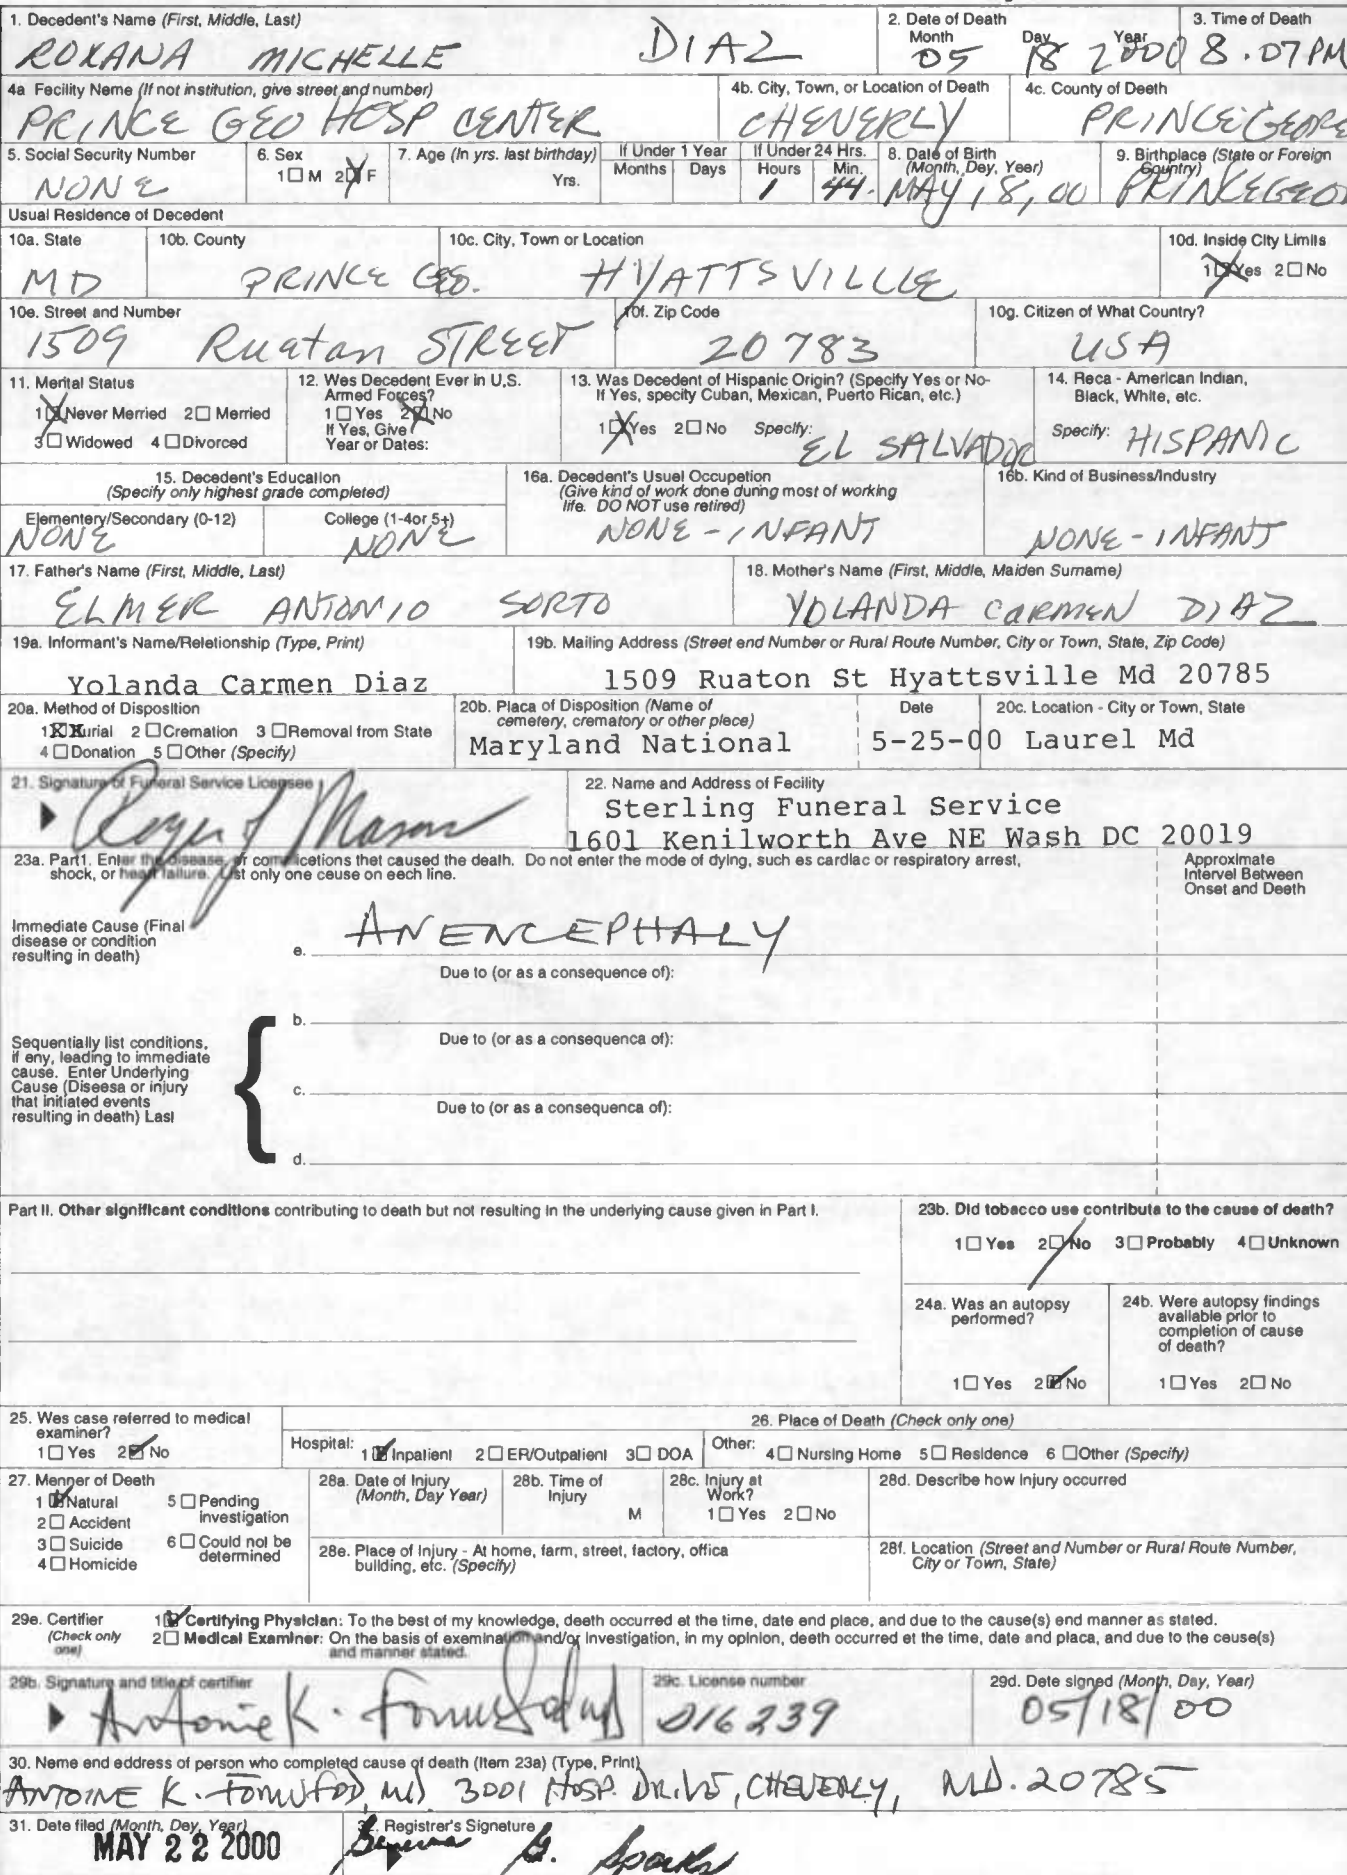 1. Decedent's Name (First, Middle, Last)
ROXANA MICHELLE DIAZ
2. Date of Death
Month Day Year
05 18 2000
3. Time of Death
8.07PM
4a Facility Name (If not institution, give street and number)
PRINCE GEO HOSP CENTER
4b. City, Town, or Location of Death
CHEVERLY
4c. County of Death
PRINCE GEORGE
5. Social Security Number
NONE
6. Sex
1☐ M 2☒ F
7. Age (In yrs. last birthday)
Yrs.
If Under 1 Year
Months Days
If Under 24 Hrs.
Hours Min.
1 44.
8. Date of Birth
(Month, Day, Year)
MAY 18, 00
9. Birthplace (State or Foreign
Country)
PRINCEGEO
Usual Residence of Decedent
10a. State
MD
10b. County
PRINCE GEO.
10c. City, Town or Location
HYATTSVILLE
10d. Inside City Limits
1☒ Yes 2☐ No
10e. Street and Number
1509 Ruatan STREET
10f. Zip Code
20783
10g. Citizen of What Country?
USA
11. Marital Status
1☒ Never Married 2☐ Married
3☐ Widowed 4☐ Divorced
12. Was Decedent Ever in U.S.
Armed Forces?
1☐ Yes 2☒ No
If Yes, Give
Year or Dates:
13. Was Decedent of Hispanic Origin? (Specify Yes or No-
If Yes, specify Cuban, Mexican, Puerto Rican, etc.)
1☒ Yes 2☐ No Specify:
EL SALVADOR
14. Race - American Indian,
Black, White, etc.
Specify: HISPANIC
15. Decedent's Education
(Specify only highest grade completed)
Elementary/Secondary (0-12)
NONE
College (1-4or 5+)
NONE
16a. Decedent's Usual Occupation
(Give kind of work done during most of working
life. DO NOT use retired)
NONE - INFANT
16b. Kind of Business/Industry
NONE - INFANT
17. Father's Name (First, Middle, Last)
ELMER ANTONIO SORTO
18. Mother's Name (First, Middle, Maiden Surname)
YOLANDA CARMEN DIAZ
19a. Informant's Name/Relationship (Type, Print)
Yolanda Carmen Diaz
19b. Mailing Address (Street and Number or Rural Route Number, City or Town, State, Zip Code)
1509 Ruaton St Hyattsville Md 20785
20a. Method of Disposition
1☒ Burial 2☐ Cremation 3☐ Removal from State
4☐ Donation 5☐ Other (Specify)
20b. Place of Disposition (Name of
cemetery, crematory or other place)
Maryland National
Date
5-25-00
20c. Location - City or Town, State
Laurel Md
21. Signature of Funeral Service Licensee
Roger J Mason
22. Name and Address of Facility
Sterling Funeral Service
1601 Kenilworth Ave NE Wash DC 20019
23a. Part1. Enter the disease, or complications that caused the death. Do not enter the mode of dying, such as cardiac or respiratory arrest,
shock, or heart failure. List only one cause on each line.
Approximate
Interval Between
Onset and Death
Immediate Cause (Final
disease or condition
resulting in death)
a. ANENCEPHALY
Due to (or as a consequence of):
b.
Due to (or as a consequence of):
Sequentially list conditions,
if any, leading to immediate
cause. Enter Underlying
Cause (Disease or injury
that initiated events
resulting in death) Last
c.
Due to (or as a consequence of):
d.
Part II. Other significant conditions contributing to death but not resulting in the underlying cause given in Part I.
23b. Did tobacco use contribute to the cause of death?
1☐ Yes 2☑ No 3☐ Probably 4☐ Unknown
24a. Was an autopsy
performed?
1☐ Yes 2☑ No
24b. Were autopsy findings
available prior to
completion of cause
of death?
1☐ Yes 2☐ No
25. Was case referred to medical
examiner?
1☐ Yes 2☑ No
26. Place of Death (Check only one)
Hospital: 1☑ Inpatient 2☐ ER/Outpatient 3☐ DOA
Other: 4☐ Nursing Home 5☐ Residence 6 ☐ Other (Specify)
27. Manner of Death
1☑ Natural 5☐ Pending
investigation
2☐ Accident
3☐ Suicide 6☐ Could not be
determined
4☐ Homicide
28a. Date of Injury
(Month, Day Year)
28b. Time of
Injury
M
28c. Injury at
Work?
1☐ Yes 2☐ No
28d. Describe how Injury occurred
28e. Place of Injury - At home, farm, street, factory, office
building, etc. (Specify)
28f. Location (Street and Number or Rural Route Number,
City or Town, State)
29a. Certifier
(Check only
one)
1☑ Certifying Physician: To the best of my knowledge, death occurred at the time, date and place, and due to the cause(s) and manner as stated.
2☐ Medical Examiner: On the basis of examination and/or investigation, in my opinion, death occurred at the time, date and place, and due to the cause(s)
and manner stated.
29b. Signature and title of certifier
Antoine K.
29c. License number
D16239
29d. Date signed (Month, Day, Year)
05/18/00
30. Name and address of person who completed cause of death (Item 23a) (Type, Print)
ANTOINE K. MD 3001 HOSP. DRIVE, CHEVERLY, MD. 20785
31. Date filed (Month, Day, Year)
MAY 22 2000
32. Registrar's Signature
G. Sparks